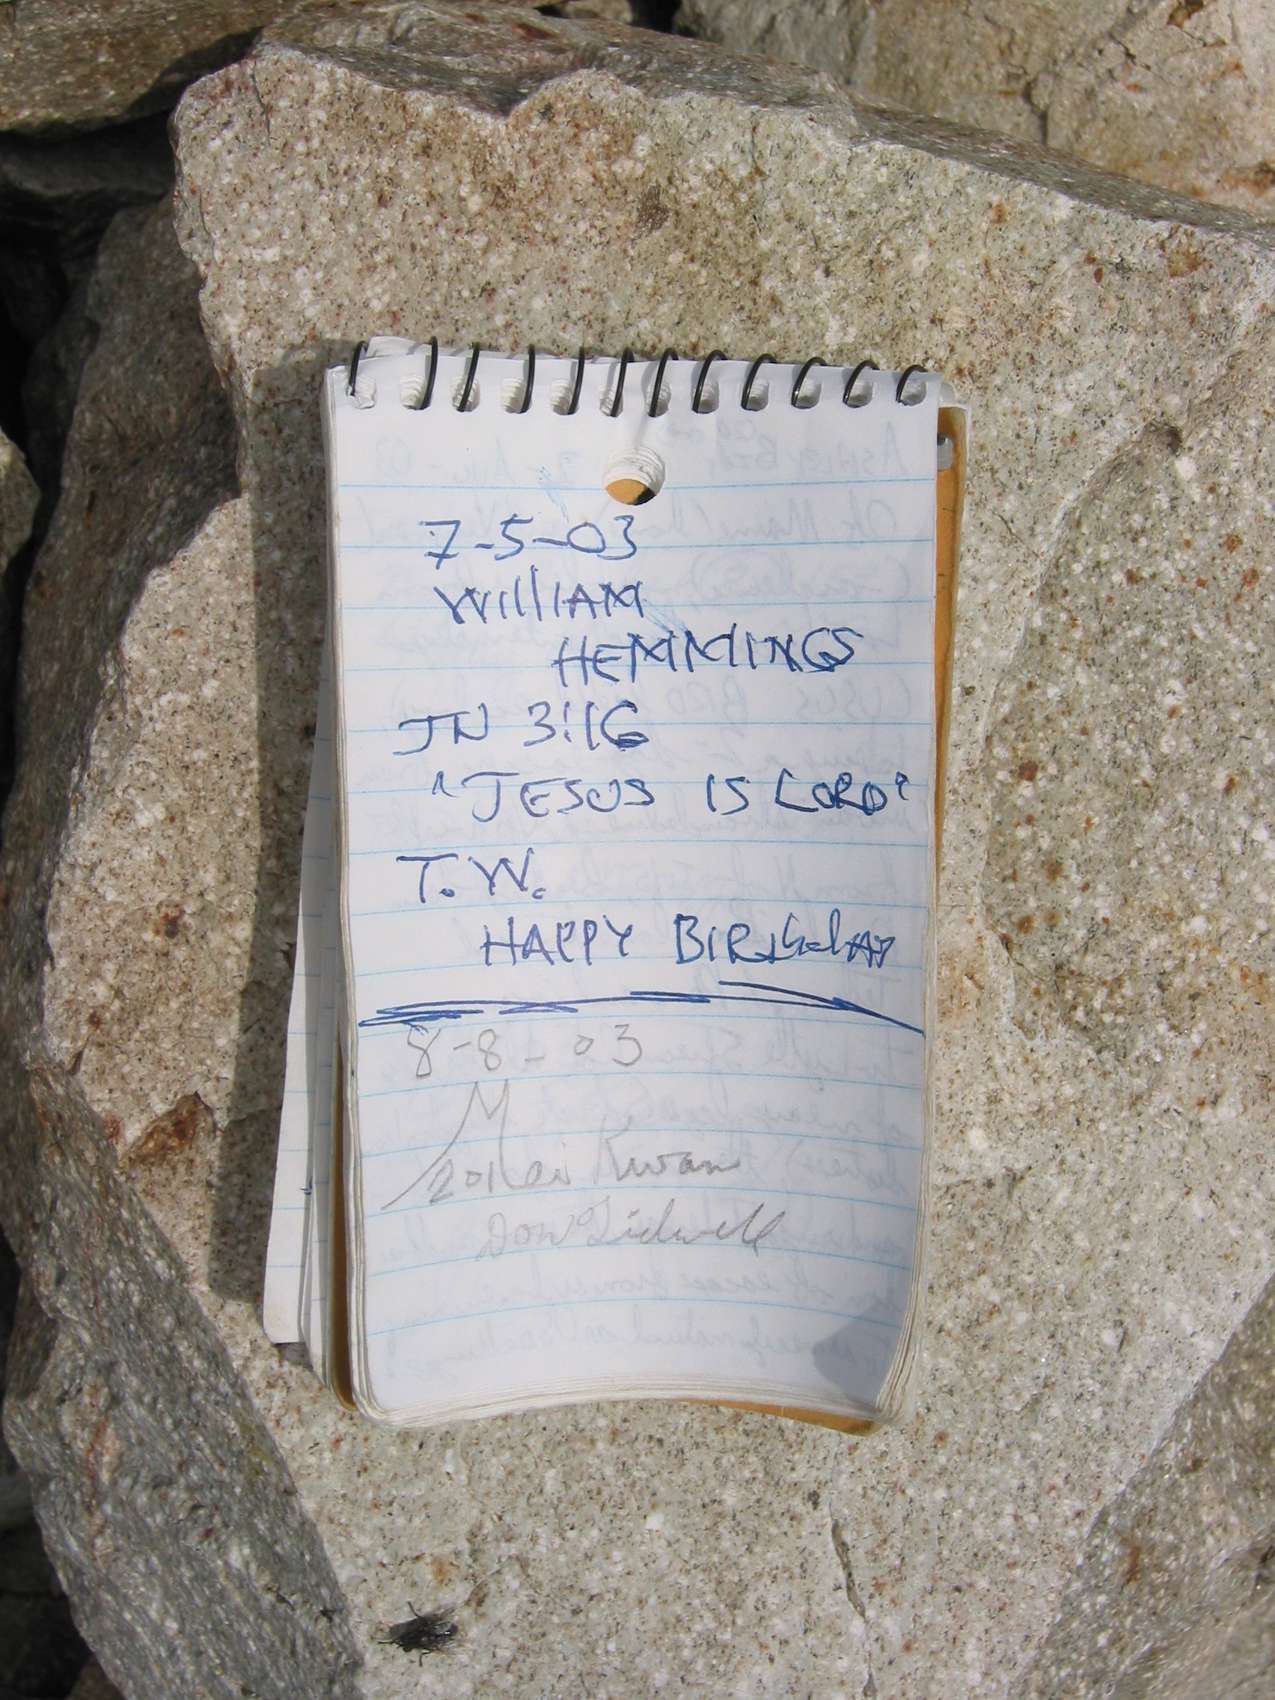 7-5-03
WIllIAM
HEMMINGS
JN 3:16
"JESUS IS LORD"
T.W.
HAPPY BIRthdAY
8-8-03
Kwan
Don Tidwell